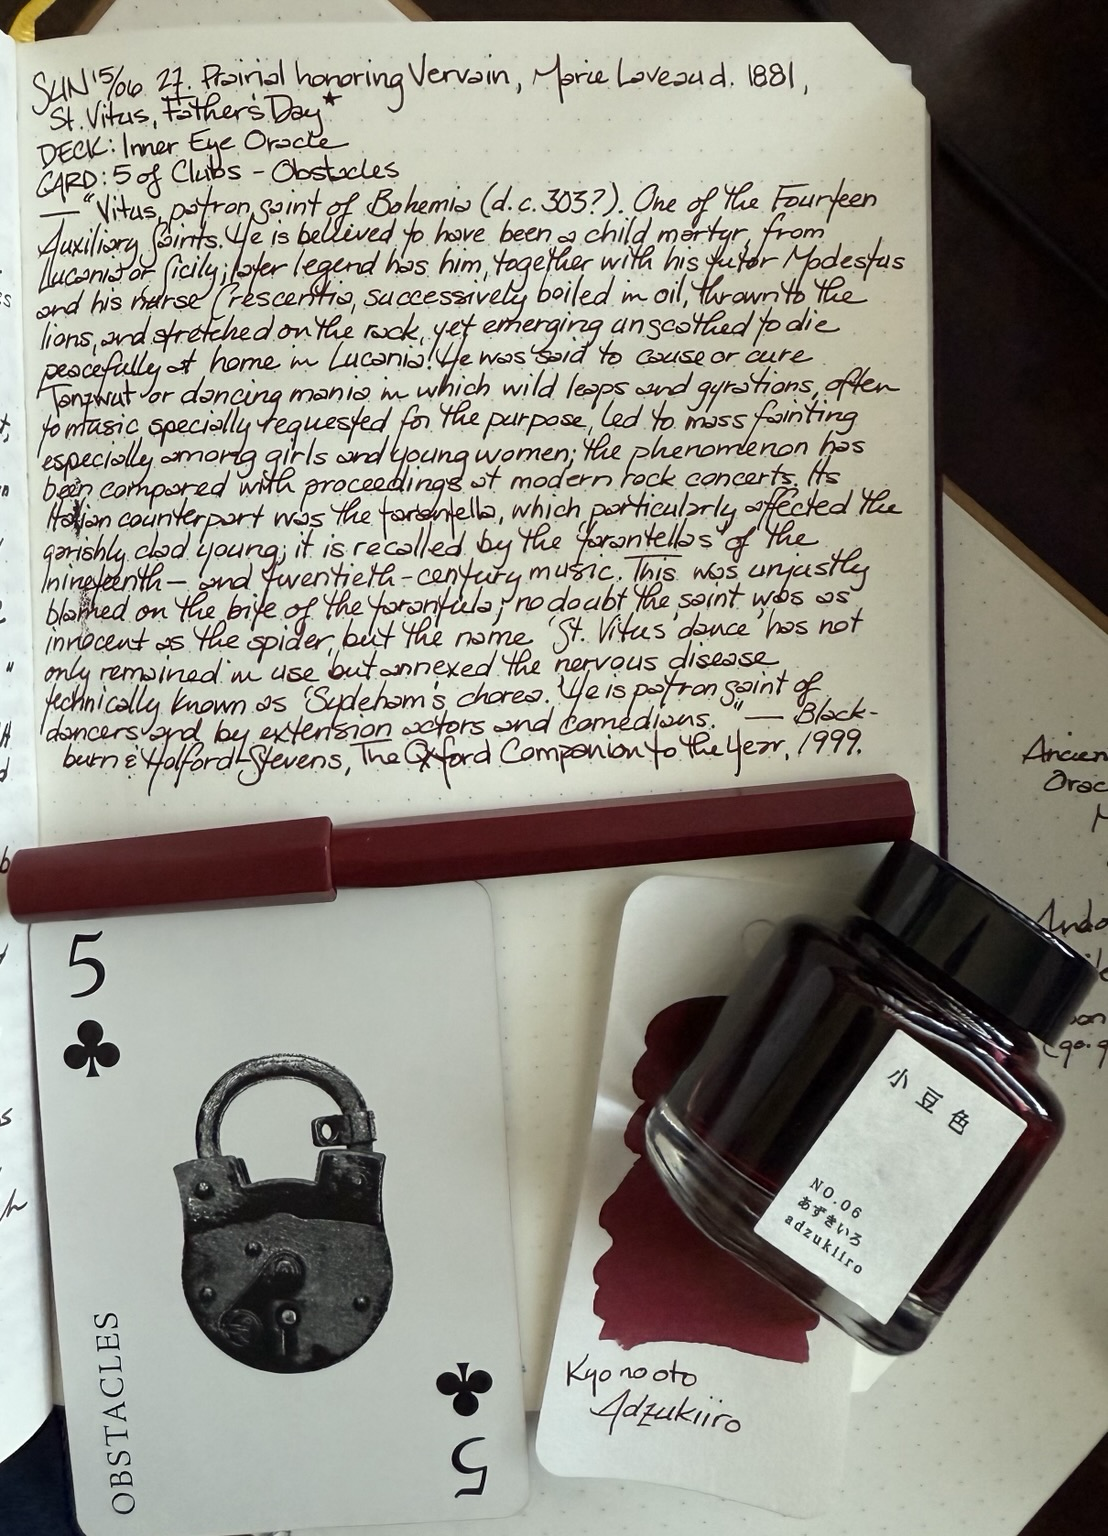 SUN 15/06 27. Prairial honoring Vervain, Marie Laveau d. 1881,
St. Vitus, Father's Day*
DECK: Inner Eye Oracle
CARD: 5 of Clubs - Obstacles
— "Vitus, patron saint of Bohemia (d. c. 303?). One of the Fourteen
Auxiliary Saints. He is believed to have been a child martyr, from
Lucania or Sicily; later legend has him, together with his tutor Modestus
and his nurse Crescentia, successively boiled in oil, thrown to the
lions, and stretched on the rack, yet emerging unscathed to die
peacefully at home in Lucania! He was said to cause or cure
Tanzwut or dancing mania in which wild leaps and gyrations, often
to music specially requested for the purpose, led to mass fainting
especially among girls and young women; the phenomenon has
been compared with proceedings at modern rock concerts. Its
Italian counterpart was the tarantella, which particularly affected the
garishly clad young; it is recalled by the 'tarantellas' of the
nineteenth- and twentieth-century music. This was unjustly
blamed on the bite of the tarantula; no doubt the saint was as
innocent as the spider, but the name 'St. Vitus' dance' has not
only remained in use but annexed the nervous disease
technically known as 'Sydeham's chorea. He is patron saint of
dancers and by extension actors and comedians." — Black-
burn & Holford-Stevens, The Oxford Companion to the Year, 1999.
5
OBSTACLES
5
小豆色
NO.06
あずきいろ
adzukiiro
Kyo no oto
Adzukiiro